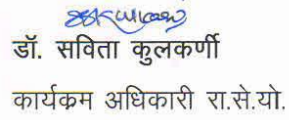 डॉ. सविता कुलकर्णी
कार्यक्रम अधिकारी रा.से.यो.